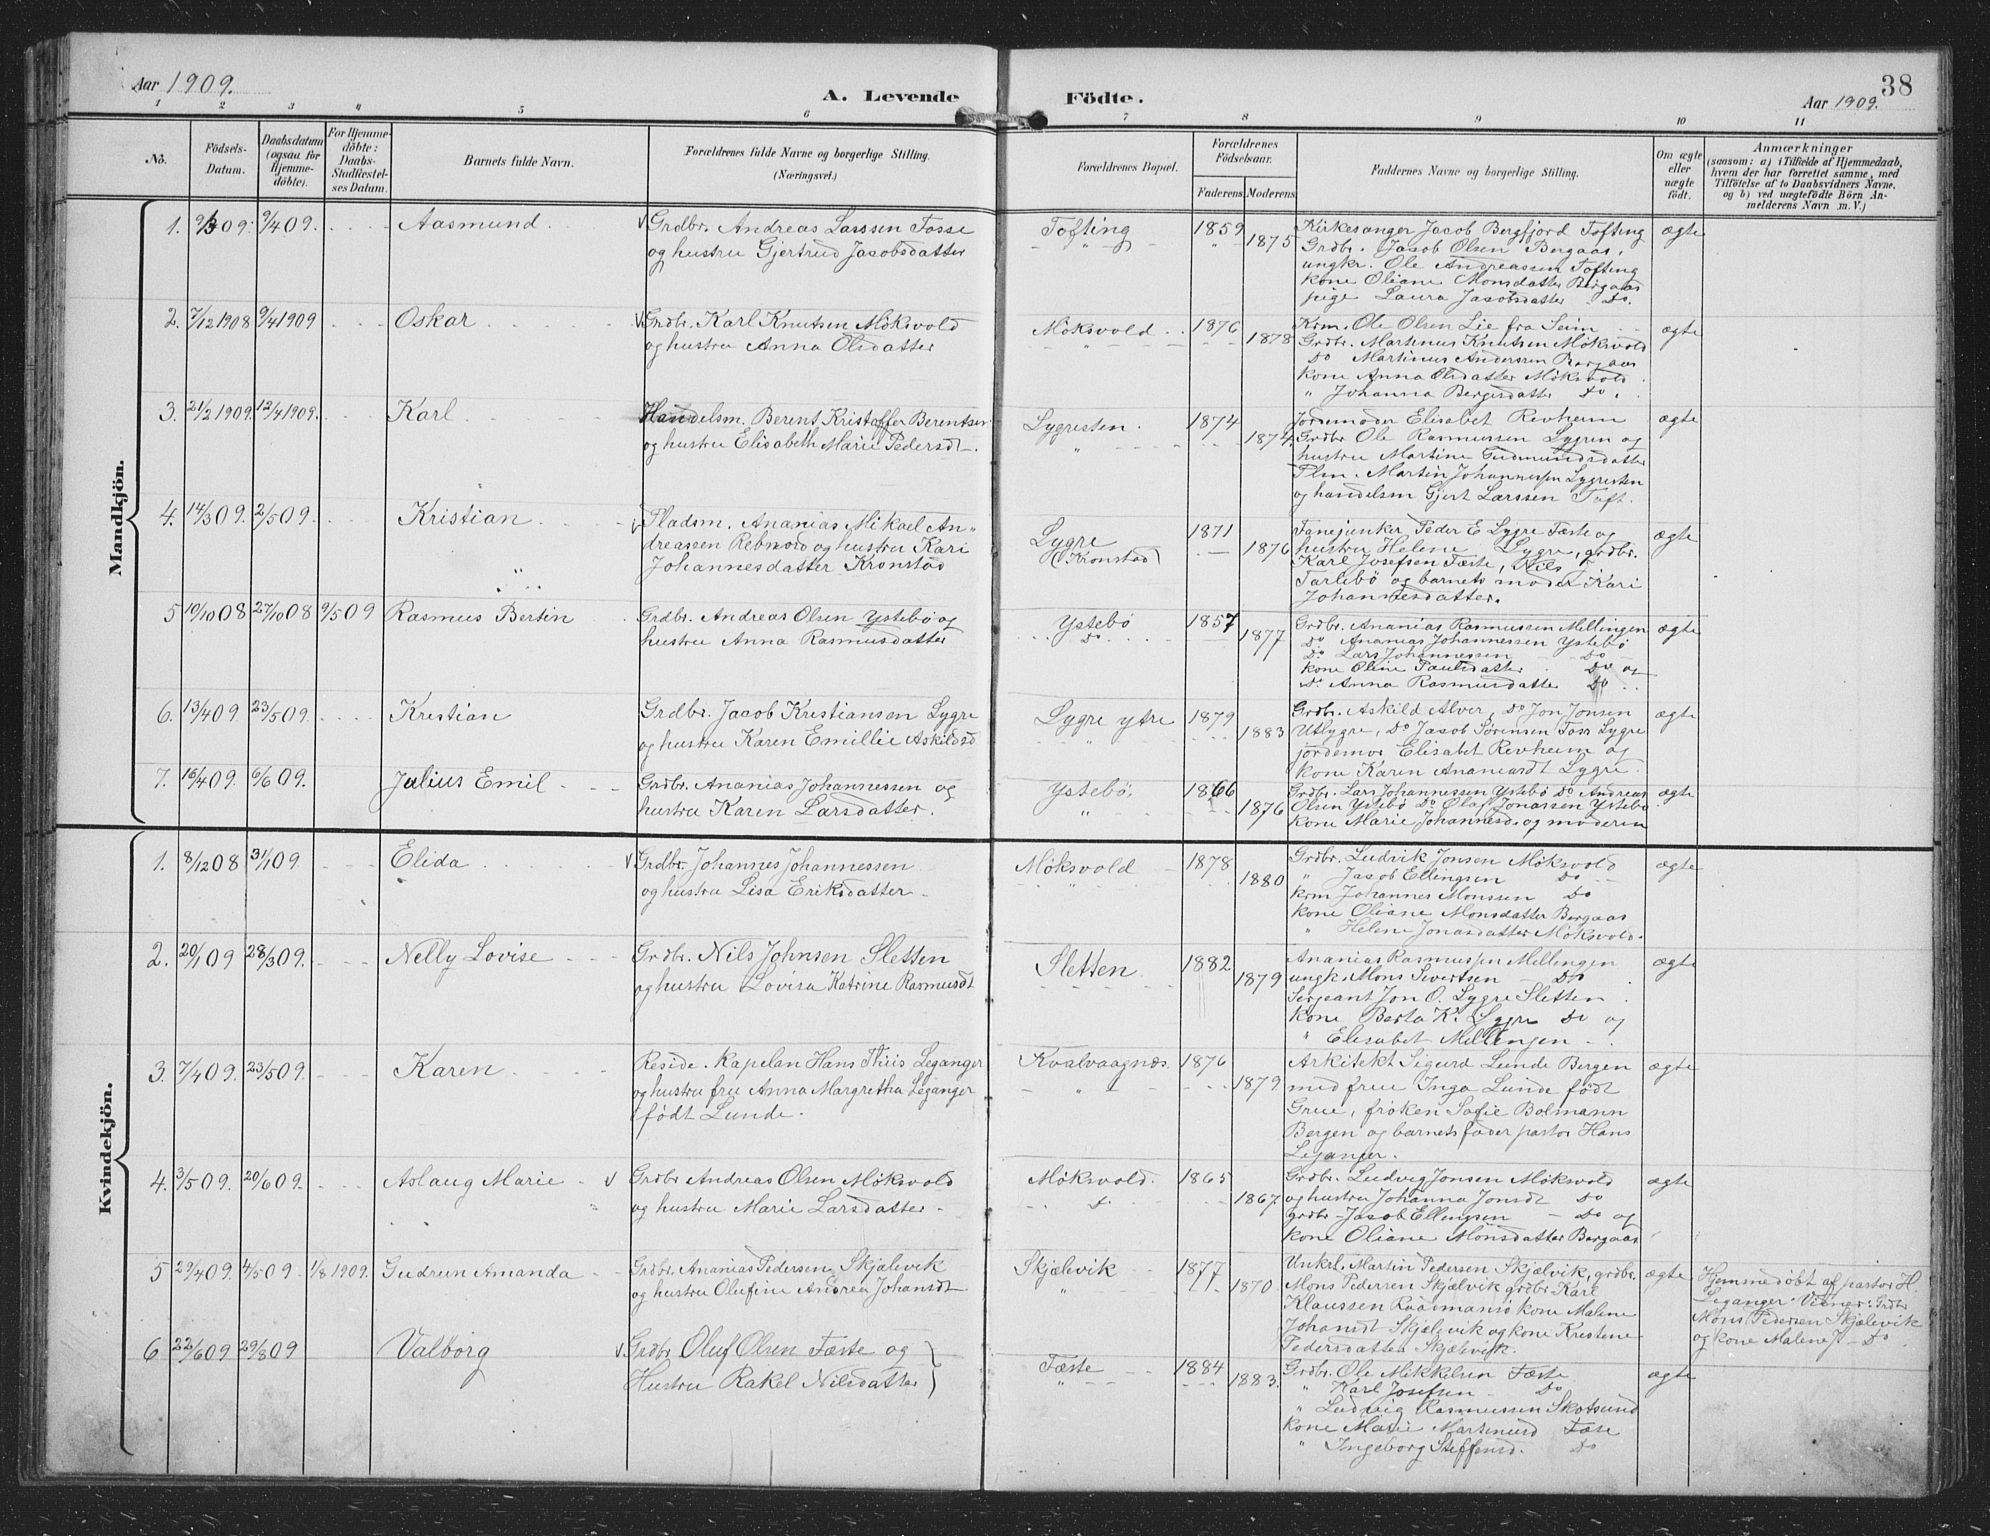 Aar 1909.
A. Levende Födte.
38
Aar 1909.
1 2 3 4 5 6 7 8 9 10 11
No.
Födsels-
Datum.
Daabsdatum
(ogsaa for
Hjemme-
döbte).
For Hjemme-
döbte:
Daabs-
Stadfæstel-
ses Datum.
Barnets fulde Navn.
Forældrenes fulde Navne og borgerlige Stilling.
(Næringsvei.)
Forældrenes Bopæl.
Forældrenes
Födselsaar.
Faderens
Moderens
Faddernes Navne og borgerlige Stilling.
Om ægte
eller
uægte
födt.
Anmærkninger
(saasom: a) i Tilfælde af Hjemmedaab,
hvem der har forrettet samme, med
Tilföielse af to Daabsvidners Navne,
og b) ved uægtefödte Börn An-
melderens Navn m. V.)
Mandkjön.
1. 9/3 09. 9/4 09. Aasmund
Grdbr. Andreas Larssen Fosse
og hustru Gjertrud Jacobsdatter
Tofting 1859 1875
Kirkesanger Jacob Bergfjord Tofting
Grdbr. Jacob Olsen Bergaas,
ungkr. Ole Andreassen Tofting
kone Oliane Monsdatter Bergaas
pige Laura Jacobsdatter Do.
ægte
2. 7/12 1908 9/4 1909 Oskar
Grdbr. Karl Knutsen Møksvold
og hustru Anna Olsdatter
Møksvold 1876 1878
Krm. Ole Olsen Lie fra Seim
Grdbr. Martinus Knutsen Møksvold
Do Martinus Anderssen Bergaas
kone Anna Olsdatter Møksvold.
" Johanna Bergesdatter Do.
ægte
3. 21/2 1909. 12/4 1909. Karl
Handelsm. Berent Kristoffer Berentsen
og hustru Elisabeth Marie Pedersdt.
Lygresten. 1874 1874.
Jordemoder Elisabet Revheim
Grdbr Ole Rasmussen Lygren og
hustru Martine Gudmundsdatter
Plm. Martin Johannessen Lygresten
og handelsm Gjert Larssen Toft.
ægte
4. 14/3 09. 2/5 09. Kristian
Pladsm. Ananias Mikael An-
dreassen Rebnord og hustru Kari
Johannesdatter Kronstad
Lygre
(Kronstad)
1871 1876
Fanejunker Peder E Lygre Fæste og
hustru Helene Lygre, grdbr.
Karl Josefsen Fæste, Nils
Tarlebö og barnets moder Kari
Johannesdatter.
ægte
5 10/10 08 27/10 08 9/5 09 Rasmus Bertin
Grdbr. Andreas Olsen Ystebø og
hustru Anna Rasmusdatter
Ystebø
Do.
1857 1877
Grdbr. Ananias Rasmussen Millingen
Do Ananias Johannessen Ystebø
Do Lars Johannessen Do
kone Oline Paulsdatter Do og
Do Anna Rasmusdatter Do
ægte
6. 13/4 09. 23/5 09. Kristian
Grdbr. Jacob Kristiansen Lygre
og hustru Karen Emillie Askildsd
Lygre ytre 1879 1883
Grdbr. Askild Alver, Do Jon Jonsen
Utlygre, Do Jacob Sørensen Foss Lygre
jordemor Elisabet Revheim og
kone Karen Ananiasdt Lygre.
ægte
7. 16/4 09. 6/6 09. Julius Emil
Grdbr. Ananias Johannessen og
hustru Karen Larsdatter.
Ystebø. 1866 1876
Grdbr. Lars Johannessen Ystebø Do Andreas
Olsen Ystebø Do Olaf Jonassen Ystebø
kone Marie Johannesd. og moderen
ægte
Kvindekjön.
1. 8/12 08 31/1 09. Elida
Grdbr. Johannes Johannessen
og hustru Lisa Eriksdatter
Møksvold 1878 1880
Grdbr. Ludvik Jonsen Møksvold
" Jacob Ellingsen Do
krm Johannes Monssen Do
kone Oliane Monsdatter Bergaas
" Helene Jonasdatter Møksvold.
ægte
2. 20/1 09 28/3 09. Nelly Lovise
Grdbr. Nils Johnsen Sletten
og hustru Lovisa Katrine Rasmusdt
Sletten. 1882 1879
Ananias Rasmussen Millingen
ungk. Mons Sivertsen Do
Sergeant Jon O. Lygre Sletten
kone Berta K. Lygre Do og
" Elisabet Millingen
ægte
3. 7/4 09. 23/5 09. Karen
Reside. kapelan Hans Thiis Leganger
og hustru fru Anna Margretha Leganger
født Lunde.
Kvalvaagnæs. 1876 1879
Arkitekt Sigurd Lunde Bergen
med frue Inga Lunde født
Grue, frøken Sofie Bolmann
Bergen og barnets fader pastor Hans
Leganger.
ægte
4. 3/5 09. 20/6 09. Aslaug Marie
Grdbr Andreas Olsen Møksvold
og hustru Marie Larsdatter
Møksvold. 1865 1867
Grdbr. Ludvig Jonsen Møksvold
og hustru Johanna Jonsdt Do
grdbr Jacob Ellingsen Do og
kone Oliane Monsdatter Bergaas
ægte
5 29/4 09. 4/5 09. 1/8 1909. Gudrun Amanda
Grdbr. Ananias Pedersen Skjælevik
og hustru Olufine Andrea Johansdt.
Skjælevik 1877 1870
Unkel. Martin Pedersen Skjælvik, grdbr.
Mons Pedersen Skjælvik grdbr Karl
Klaussen Raadmansø kone Malene
Johansdt Skjælevik og kone Kristene
Pedersdatter Skjælevik.
ægte
Hjemmedøbt af pastor H.
Leganger. Vidner: Grdbr
Mons Pedersen Skjælevik
og kone Malene J. Do.
6 22/6 09 29/8 09 Valborg
Grdbr Oluf Olsen Fæste og
Hustru Rakel Nilsdatter
Fæste 1884 1883.
Grdbr. Ole Mikkelsen Fæste
" Karl Josefsen Do
" Ludvig Rasmussen Skotsund
kone Marie Martinusd Fæste
" Ingeborg Steffensd. Do
ægte